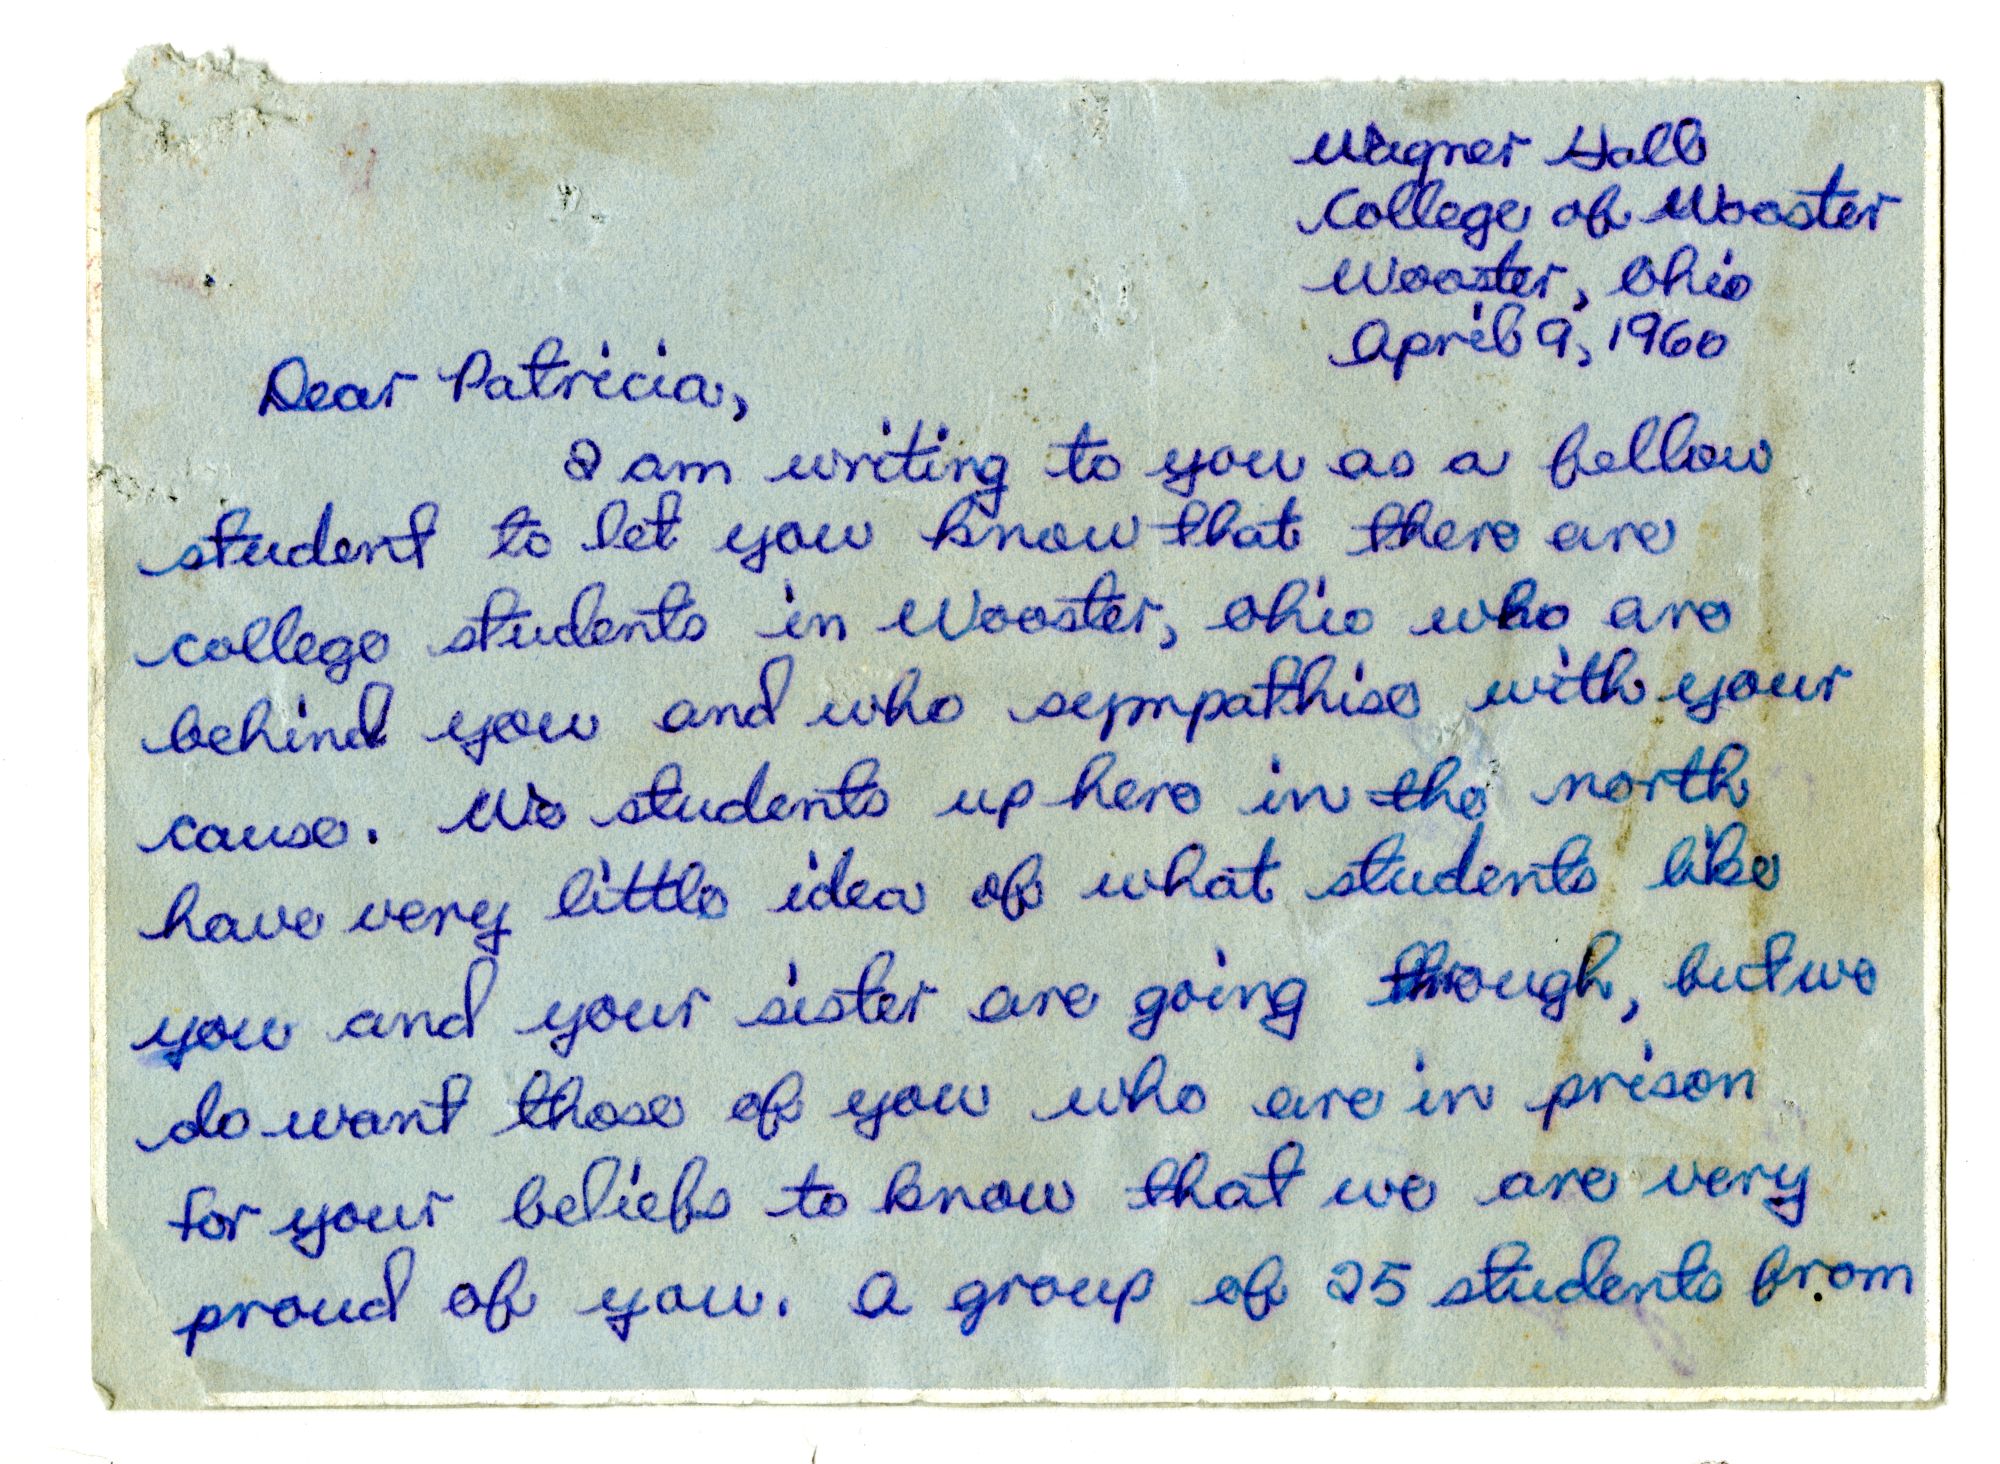 Wagner Hall
College of Wooster
Wooster, Ohio
April 9, 1960
Dear Patricia,
I am writing to you as a fellow
student to let you know that there are
college students in Wooster, Ohio who are
behind you and who sympathise with your
cause. We students up here in the north
have very little idea of what students like
you and your sister are going through, but we
do want those of you who are in prison
for your beliefs to know that we are very
proud of you. A group of 25 students from